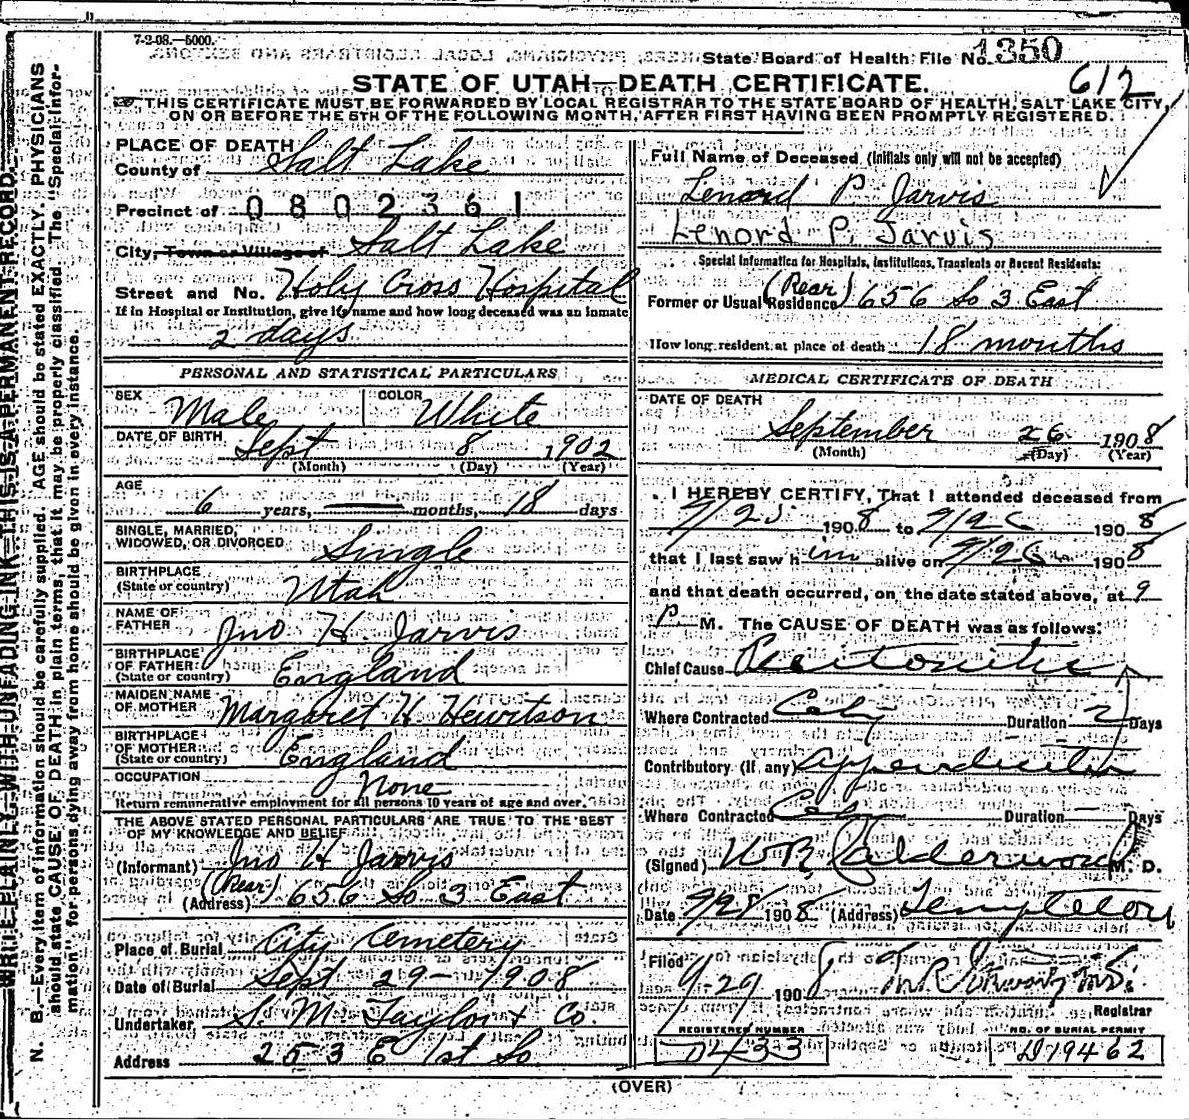 7-2-08.—5000.
State Board of Health File No. 1350
612
STATE OF UTAH—DEATH CERTIFICATE.
THIS CERTIFICATE MUST BE FORWARDED BY LOCAL REGISTRAR TO THE STATE BOARD OF HEALTH, SALT LAKE CITY,
ON OR BEFORE THE 5TH OF THE FOLLOWING MONTH, AFTER FIRST HAVING BEEN PROMPTLY REGISTERED.
WRITE PLAINLY WITH UNFADING INK—THIS IS A PERMANENT RECORD.
N. B.—Every item of information should be carefully supplied. AGE should be stated EXACTLY. PHYSICIANS
should state CAUSE OF DEATH in plain terms, that it may be properly classified. The "Special Infor-
mation" for persons dying away from home should be given in every instance.
PLACE OF DEATH
County of Salt Lake
Precinct of 0802361
City, Town or Village of Salt Lake
Street and No. Holy Cross Hospital
If in Hospital or Institution, give its name and how long deceased was an inmate
2 days
PERSONAL AND STATISTICAL PARTICULARS
SEX Male COLOR White
DATE OF BIRTH Sept 8 1902
(Month) (Day) (Year)
AGE
6 years, — months, 18 days
SINGLE, MARRIED,
WIDOWED, OR DIVORCED Single
BIRTHPLACE
(State or country) Utah
NAME OF
FATHER Jno H. Jarvis
BIRTHPLACE
OF FATHER
(State or country) England
MAIDEN NAME
OF MOTHER Margaret H Hewitson
BIRTHPLACE
OF MOTHER
(State or country) England
OCCUPATION None
Return remunerative employment for all persons 10 years of age and over.
THE ABOVE STATED PERSONAL PARTICULARS ARE TRUE TO THE BEST
OF MY KNOWLEDGE AND BELIEF
(Informant) Jno H Jarvis
(Address) (Rear) 656 So 3 East
Place of Burial City Cemetery
Date of Burial Sept 29 - 1908
Undertaker S. M. Taylor & Co
Address 253 E 1st So
Full Name of Deceased (Initials only will not be accepted)
Lenord P. Jarvis
Lenord P. Jarvis
Special Information for Hospitals, Institutions, Transients or Recent Residents:
Former or Usual Residence (Rear) 656 So 3 East
How long resident at place of death 18 months
MEDICAL CERTIFICATE OF DEATH
DATE OF DEATH
September 26 1908
(Month) (Day) (Year)
I HEREBY CERTIFY, That I attended deceased from
9/25 1908 to 9/26 1908
that I last saw him alive on 9/26 1908
and that death occurred, on the date stated above, at 9
P. M. The CAUSE OF DEATH was as follows:
Chief Cause Peritonitis
Where Contracted City Duration 2 Days
Contributory (If any) Appendicitis
Where Contracted City Duration — Days
(Signed) W R Calderwood M. D.
Date 9/28 1908 (Address) Templeton
Filed 9-29 1908 M.D.
Registrar
REGISTERED NUMBER
D433
NO. OF BURIAL PERMIT
D79462
(OVER)